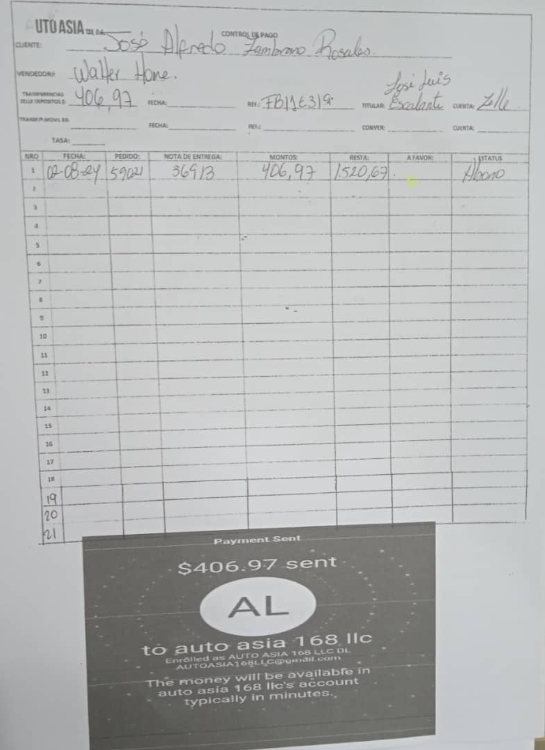 UTO ASIA
CONTROL DE PAGO
CLIENTE: José Alfredo Zambrano Rosales.
VENDEDOR: Walter Hone.
TRANSFERENCIAS 406,97 FECHA: REF.: TITULAR: José Luis Escalante CUENTA: Zelle
FECHA: REF.: CONVER: CUENTA:
TASA:
NRO FECHA: PEDIDO: NOTA DE ENTREGA: MONTOS: RESTA: A FAVOR: ESTATUS
1 02-08-24 59021 36913 406,97 1.520,67. Abono
2
3
4
5
6
7
8
9
10
11
12
13
14
15
16
17
18
19
20
21
Payment Sent
$406.97 sent
AL
to auto asia 168 llc
Enrolled as AUTO ASIA 168 LLC DL
AUTOASIA168LLC@gmail.com
The money will be available in
auto asia 168 llc's account
typically in minutes.